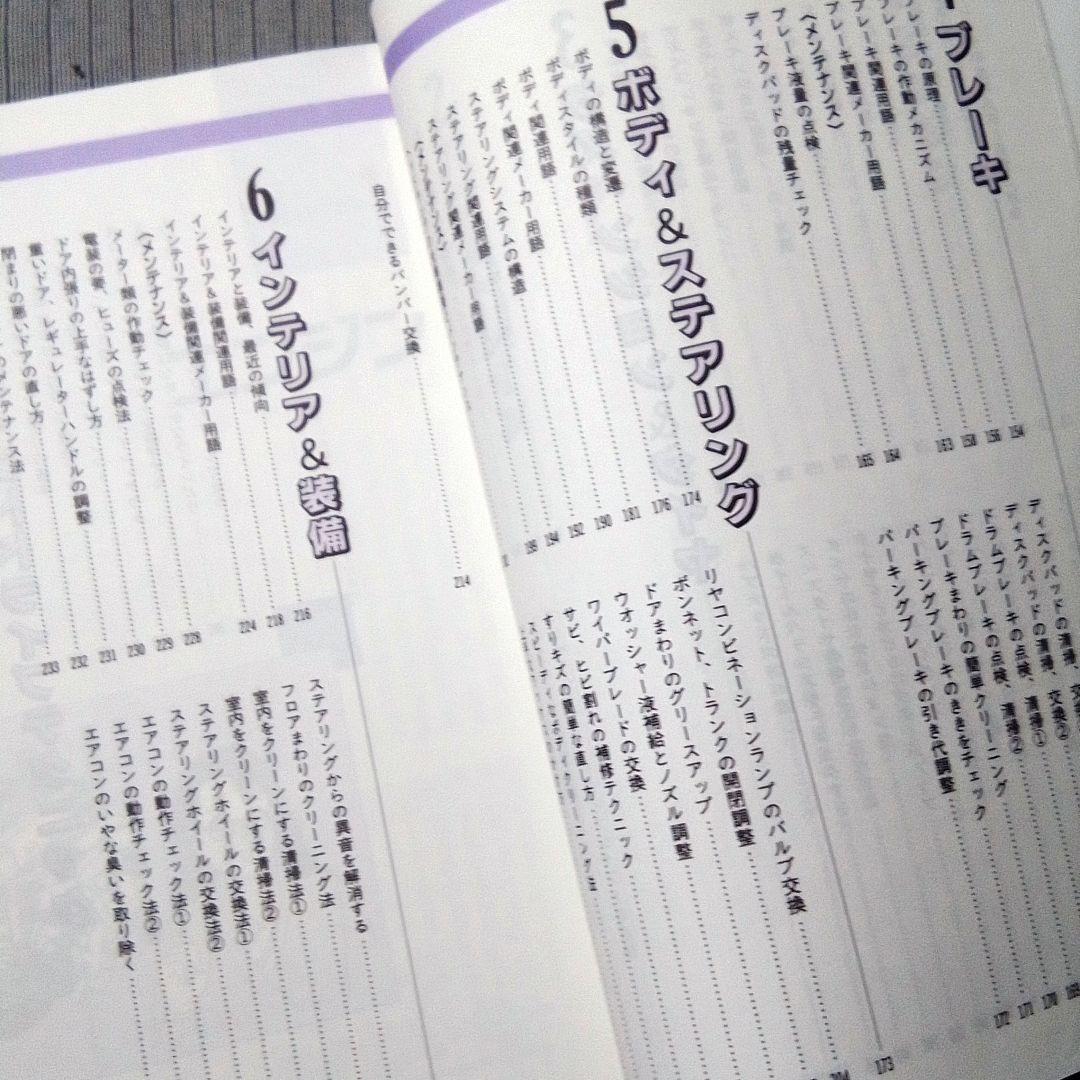 ブレーキ
ブレーキの原理 154
ブレーキの作動メカニズム 156
ブレーキ関連用語 158
ブレーキ関連メーカー用語 163
〈メンテナンス〉
ブレーキ液量の点検 164
ディスクパッドの残量チェック 165
ディスクパッドの清掃、
ディスクパッドの清掃、交換②
ディスクブレーキの点検、清掃①
ドラムブレーキの点検、清掃②
ドラムブレーキまわりの簡単クリーニング
ブレーキのききをチェック
パーキングブレーキの引き代調整
170
171
172
5 ボディ&ステアリング 173
ボディの構造と変遷 174
ボディスタイルの種類 176
ボディ関連用語 181
ボディ関連メーカー用語 190
ステアリングシステムの構造 192
ステアリング関連用語 194
ステアリング関連メーカー用語 199
〈メンテナンス〉
リヤコンビネーションランプのバルブ交換
ボンネット、トランクの開閉調整
ドアまわりのグリースアップ
ウオッシャー液補給とノズル調整
ワイパーブレードの交換
サビ、ヒビ割れの補修テクニック
すりキズの簡単な直し方
スピーディなボディクリーニング法
204
自分でできるバンパー交換 214
6 インテリア&装備
インテリアと装備、最近の傾向 216
インテリア&装備関連用語 218
インテリア&装備関連メーカー用語 224
〈メンテナンス〉
メーター類の作動チェック 228
電装の要、ヒューズの点検法 229
ドア内張りの上手なはずし方 230
重いドア、レギュレーターハンドルの調整 231
閉まりの悪いドアの直し方 232
のメンテナンス法 233
ステアリングからの異音を解消する
フロアまわりのクリーニング法
室内をクリーンにする清掃法①
室内をクリーンにする清掃法②
ステアリングホイールの交換法①
ステアリングホイールの交換法②
エアコンの動作チェック法①
エアコンの動作チェック法②
エアコンのいやな臭いを取り除く